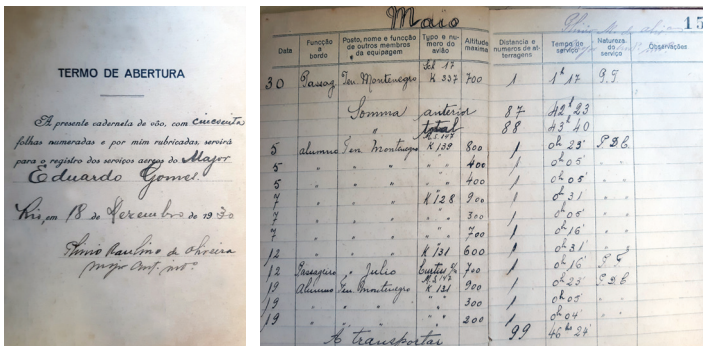 TERMO DE ABERTURA
A presente caderneta de vôo, com cincoenta
folhas numeradas e por mim rubricadas, servirá
para o registro dos serviços aereos do Major
Eduardo Gomes.
Rio, em 18 de Dezembro de 1930
Plinio Raulino de Oliveira
Major
Maio
15
Data
Funcção a bordo
Posto, nome e funcção de outros membros da equipagem
Typo e numero do avião
Altitude máxima
Distancia e numeros de aterragens
Tempo de serviço
Natureza do serviço
Observações
30 Passag Ten. Montenegro K 337 700 1 1h 17
Somma anterior 87 42h 23
" total 88 43h 40
5 alumno Ten. Montenegro K 139 800 1 0h 25'
5 " " " " " 400 1 0h 05'
5 " " " " " 400 1 0h 05'
7 " " " K 128 900 1 0h 31
7 " " " " " 300 1 0h 05'
7 " " " " " 700 1 0h 16'
12 " " " K 131 600 1 0h 31'
12 Passageiro " Julio Curtiss 700 1 0h 16'
19 Alumno Ten. Montenegro K 131 900 1 0h 25'
19 " " " " " 300 1 0h 05'
19 " " " " " 200 1 0h 04'
A transportar 99 46hs 24'